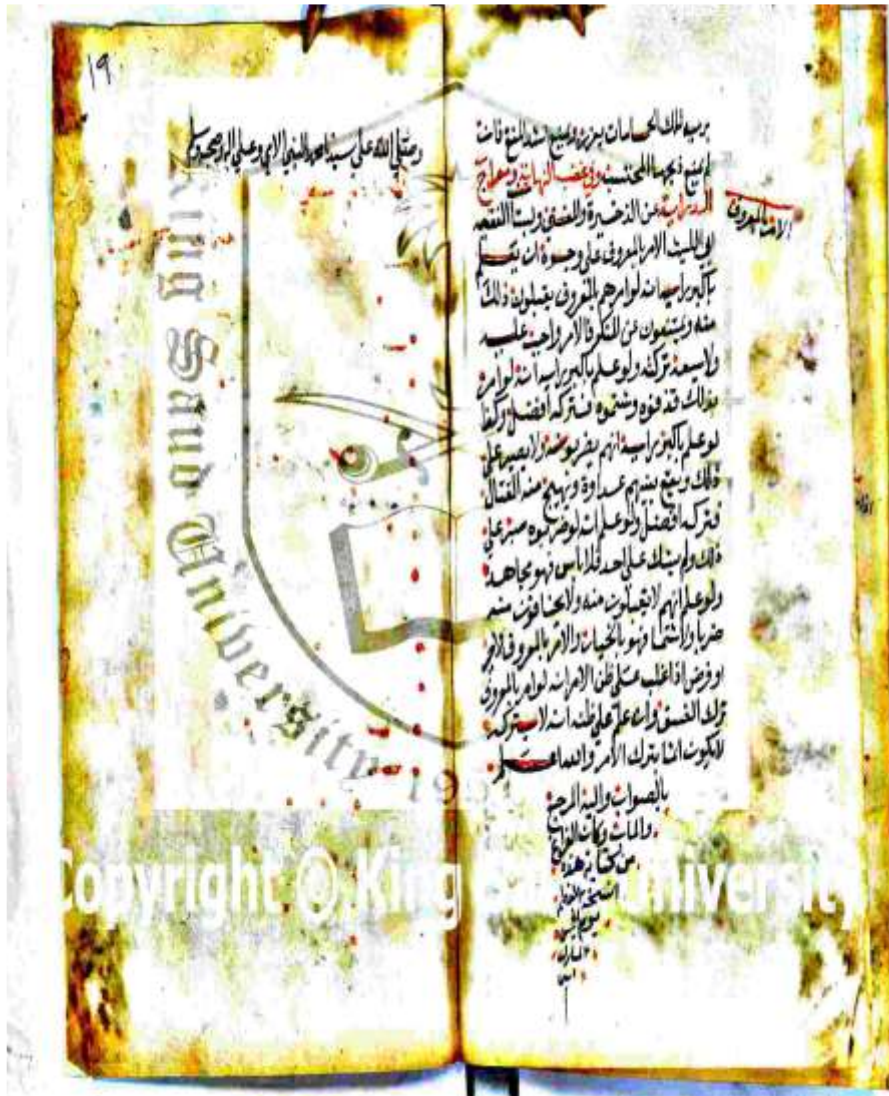 برميه تلك الحمامات يعزر ويمنع اشد المنع فان
لم يمتنع ذبحها المحتسب وفي غضب النهاية ومعراج
الدراية عن الذخيرة والمغني وبستان الفقيه
ابي الليث الامر بالمعروف على وجوه ان يعلم
باكبر رايه انه لو امرهم بالمعروف يقبلون ذلك
منه ويمتنعون عن المنكر فالامر واجب عليه
ولا يسعه تركه ولو علم باكبر رايه انه لو امر
بذلك قذفوه وشتموه فتركه افضل وكذا
لو علم باكبر رايه انهم يضربونه ولا يصبر على
ذلك ويقع بينهم عداوة ويهيج منه القتال
فتركه افضل ولو علم انه لو ضربوه صبر على
ذلك ولم يشك على احد فلا باس فهو مجاهد
ولو علم انهم لا يقبلون منه ولا يخاف منهم
ضربا ولا شتما فهو بالخيار والامر بالمعروف
او فرض اذا غلب على ظن الامر انه لو امر بالمعروف
ترك الفسق وان علم على ظنه انه لا يتركه
لا يكون اثما بترك الامر والله اعلم
بالصواب واليه المرجع
والماب وكان الفراغ
من كتابة هذه
النسخة
يوم
المبارك
الامر بالمعروف
١٩
وصلى الله على سيدنا محمد النبي الامي وعلى اله وصحبه وسلم
King Saud University
195
Copyright © King Saud University